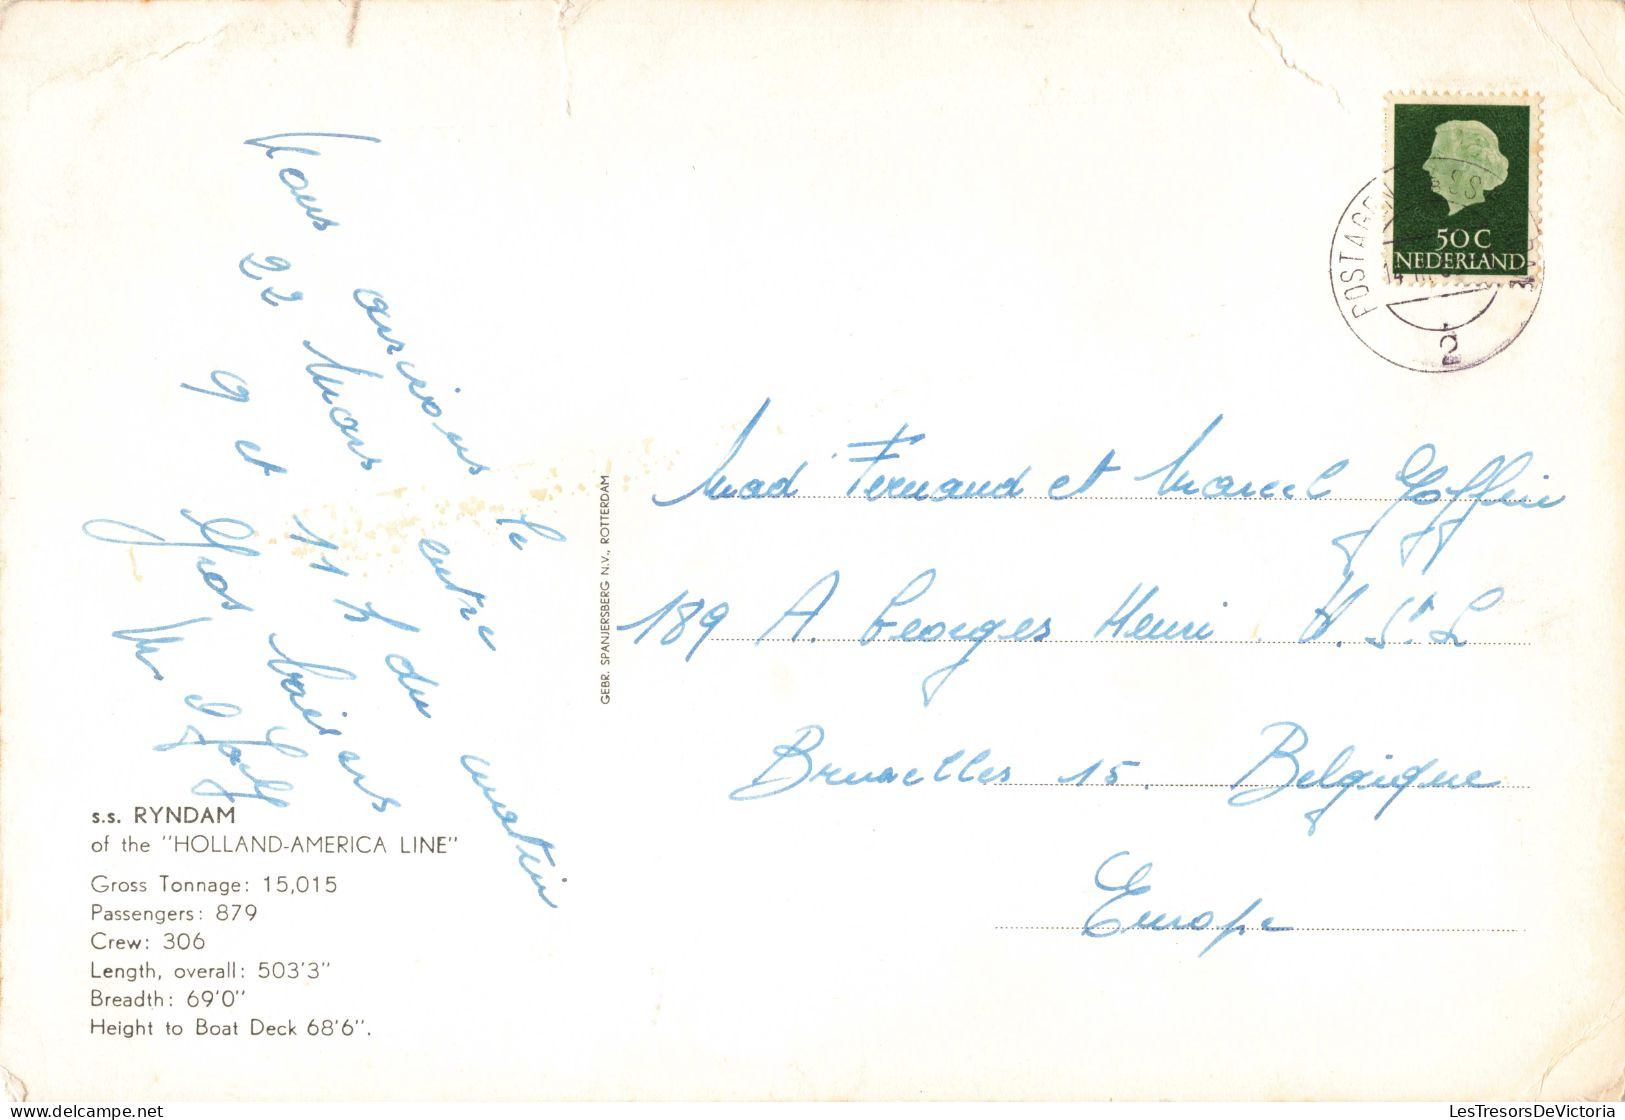 Nous arrivons le
22 Mars entre
9 et 11 h du matin
Gros baisers
M
s.s. RYNDAM
of the "HOLLAND-AMERICA LINE"
Gross Tonnage: 15,015
Passengers: 879
Crew: 306
Length, overall: 503'3"
Breadth: 69'0"
Height to Boat Deck 68'6".
GEBR. SPANJERSBERG N.V., ROTTERDAM
50 C
NEDERLAND
POSTAG
SS
14 III
2
Mad Fernand et Marcel Goffin
189 A. Georges Henri. W. St. L
Bruxelles 15. Belgique
Europe
LesTresorsDeVictoria